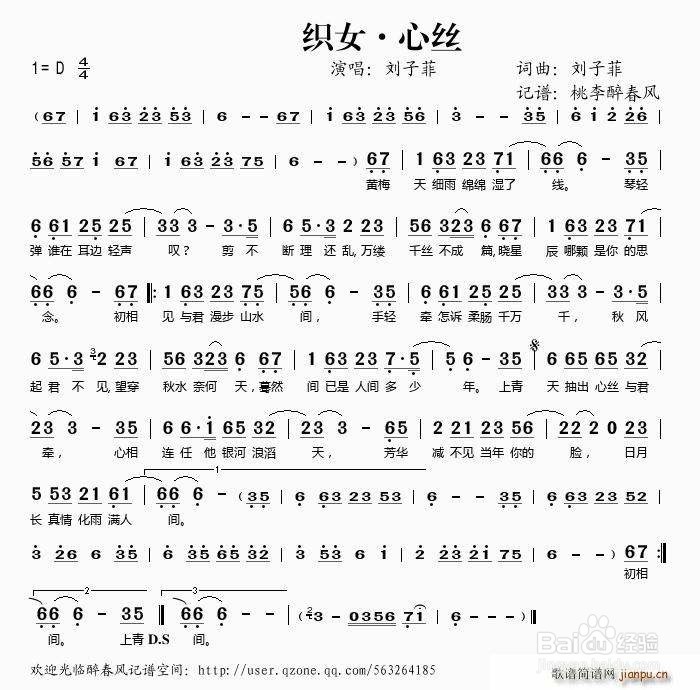 织女·心丝
1=D 4/4 演唱: 刘子菲 词曲: 刘子菲
记谱: 桃李醉春风
(67 | i 63 23 53 | 6 - - 67 | i 63 23 56 | 3 - - 35 | 6 i 2 26 |
56 57 i 67 | i 63 23 75 | 6 - - ) 67 | 1 63 23 71 | 66 6 - 35 |
黄梅 天 细雨 绵绵 湿了 线。 琴轻
6 61 25 25 | 33 3 - 3·5 | 6 5·3 2 23 | 56 323 6 67 | 1 63 23 71 |
弹 谁在 耳边 轻声 叹? 剪 不 断 理 还 乱, 万缕 千丝 不成 篇, 晓星 辰 哪颗 是你 的思
66 6 - 67 |: 1 63 23 75 | 56 6 - 35 | 6 61 25 25 | 33 3 - 3·5 |
念。 初相 见 与君 漫步 山水 间, 手轻 牵 怎诉 柔肠 千万 千, 秋 风
6 5·3 2 23 | 56 323 6 67 | 1 63 23 7·5 | 5 6 - 35 | 6 65 65 32 |
起 君 不 见, 望穿 秋水 奈何 天, 蓦然 间 已是 人间 多 少 年。 上青 天 抽出 心丝 与君
23 3 - 35 | 6 6·i 65 35 | 23 3 - 65 | 2 21 23 56 | 2 2 0 23 |
牵, 心相 连 任 他 银河 浪滔 天, 芳华 减 不见 当年 你的 脸, 日月
1
5 53 21 61 | 66 6 - (35 | i 63 23 53 | 6 - - 35 | 6 63 23 52 |
长 真情 化雨 满人 间。
3 26 6 35 | 6 35 6 6i | 3 53 6 i | 2 23 2i 75 | 6 - - ) 67 :|
初相
2 3
66 6 - 35 | 66 6 - - | (3 - 0356 7i | 6 - - - )|
间。 上青 D.S 间。
欢迎光临醉春风记谱空间: http://user.qzone.qq.com/563264185
Baidu 经验
歌谱简谱网
jianpu.cn